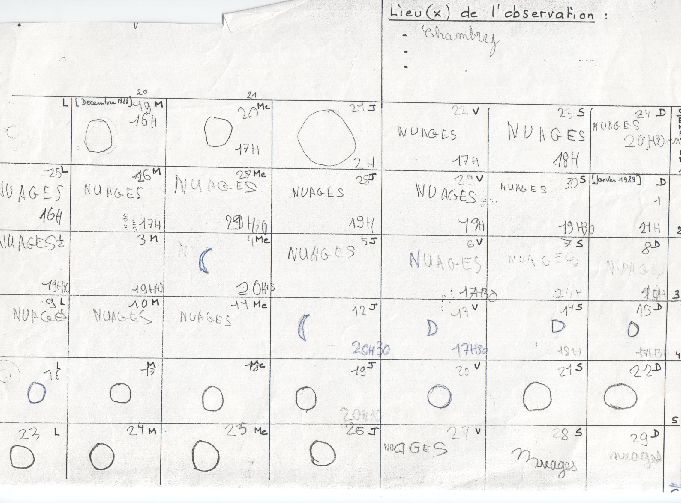 Lieu(x) de l'observation :
- Chambrey
-
-
20
21
L
[Decembre 1988] 19 M
15H
20 Me
17H
21 J
22 V
NUAGES
17H
23 S
NUAGES
18H
24 D
NUAGES
20H30
25 L
NUAGES
16H
26 M
NUAGES
17H
Me
NUAGES
28 J
NUAGES
19H
29 V
NUAGES
19H
30 S
NUAGES
19H30
[Janvier 1989] D
1
21H
2
NUAGES
3 M
19H30
4 Me
20H
5 J
NUAGES
6 V
NUAGES
17H30
7 S
NUAGES
8 D
NUAGES
3
9 L
NUAGES
10 M
NUAGES
11 Me
NUAGES
12 J
20H30
13 V
17H30
14 S
18H
15 D
17H30
4
16 L
17 M
18 Me
19 J
20 V
21 S
22 D
5
23 L
24 M
25 Me
26 J
27 V
NUAGES
28 S
Nuages
29 D
nuages